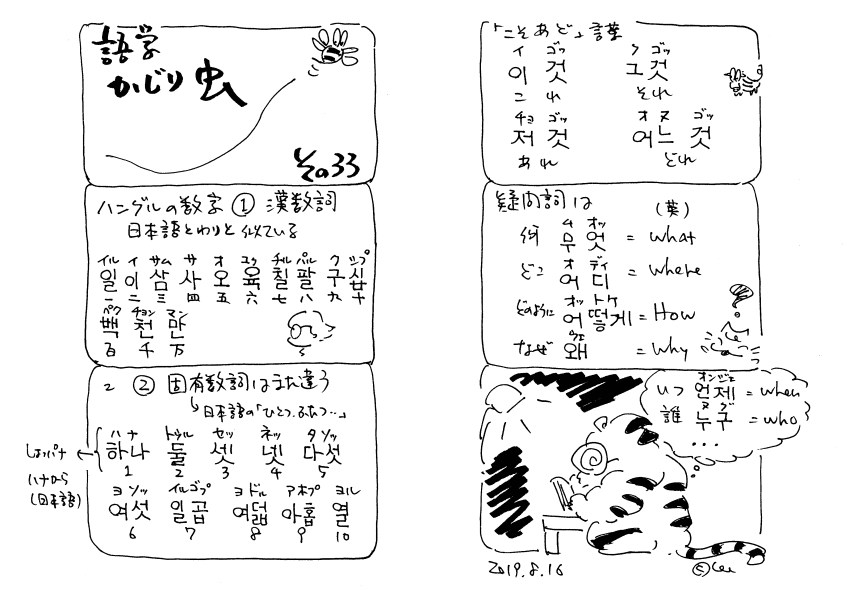 語学
かじり虫
その33
ハングルの数字 ① 漢数詞
日本語とわりと似ている
イル イ サム サ オ ユク チル パル ク シプ
일 이 삼 사 오 육 칠 팔 구 십
一 二 三 四 五 六 七 八 九 十
ペク チョン マン
백 천 만
百 千 万
② 固有数詞はまた違う
日本語の「ひとつ、ふたつ…」
ハナ トゥル セッ ネッ タソッ
하나 둘 셋 넷 다섯
1 2 3 4 5
しょっパナ
ハナから
(日本語)
ヨソッ イルゴプ ヨドル アホプ ヨル
여섯 일곱 여덟 아홉 열
6 7 8 9 10
「こそあど」言葉
イ ゴッ ク ゴッ
이 것 그 것
これ それ
チョ ゴッ オヌ ゴッ
저 것 어느 것
あれ どれ
疑問詞は (英)
ム オッ
何 무엇 = what
オ ディ
どこ 어디 = where
オットケ
どのように 어떻게 = How
ウェ
なぜ 왜 = why
オンジェ
いつ 언제 = when
ヌグ
誰 누구 = who
...
2019.8.16